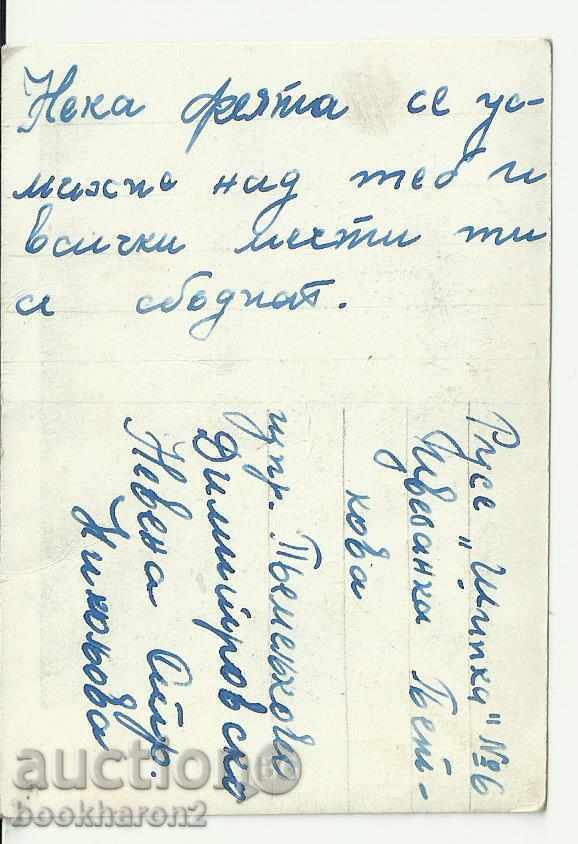 Нека феята се ус-
михне над теб и
всички мечти ти
се сбоднат.
Русе "Шипка" №6
Цветанка Пет-
кова
щпр.
Димитровско
Невена Стр.
Николова
auction
bookharon2